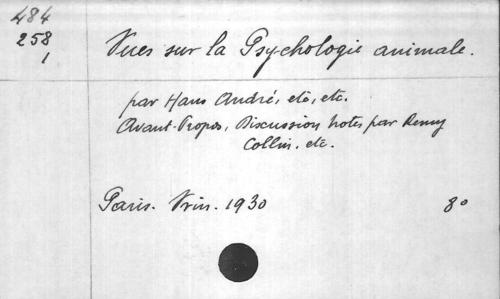 484
258
1
Vues sur la Psychologie animale.
par Hans André, etc, etc.
Avant-Propos, Discussion notes par Remy
Collin. etc.
Paris. Vrin. 1930 8°